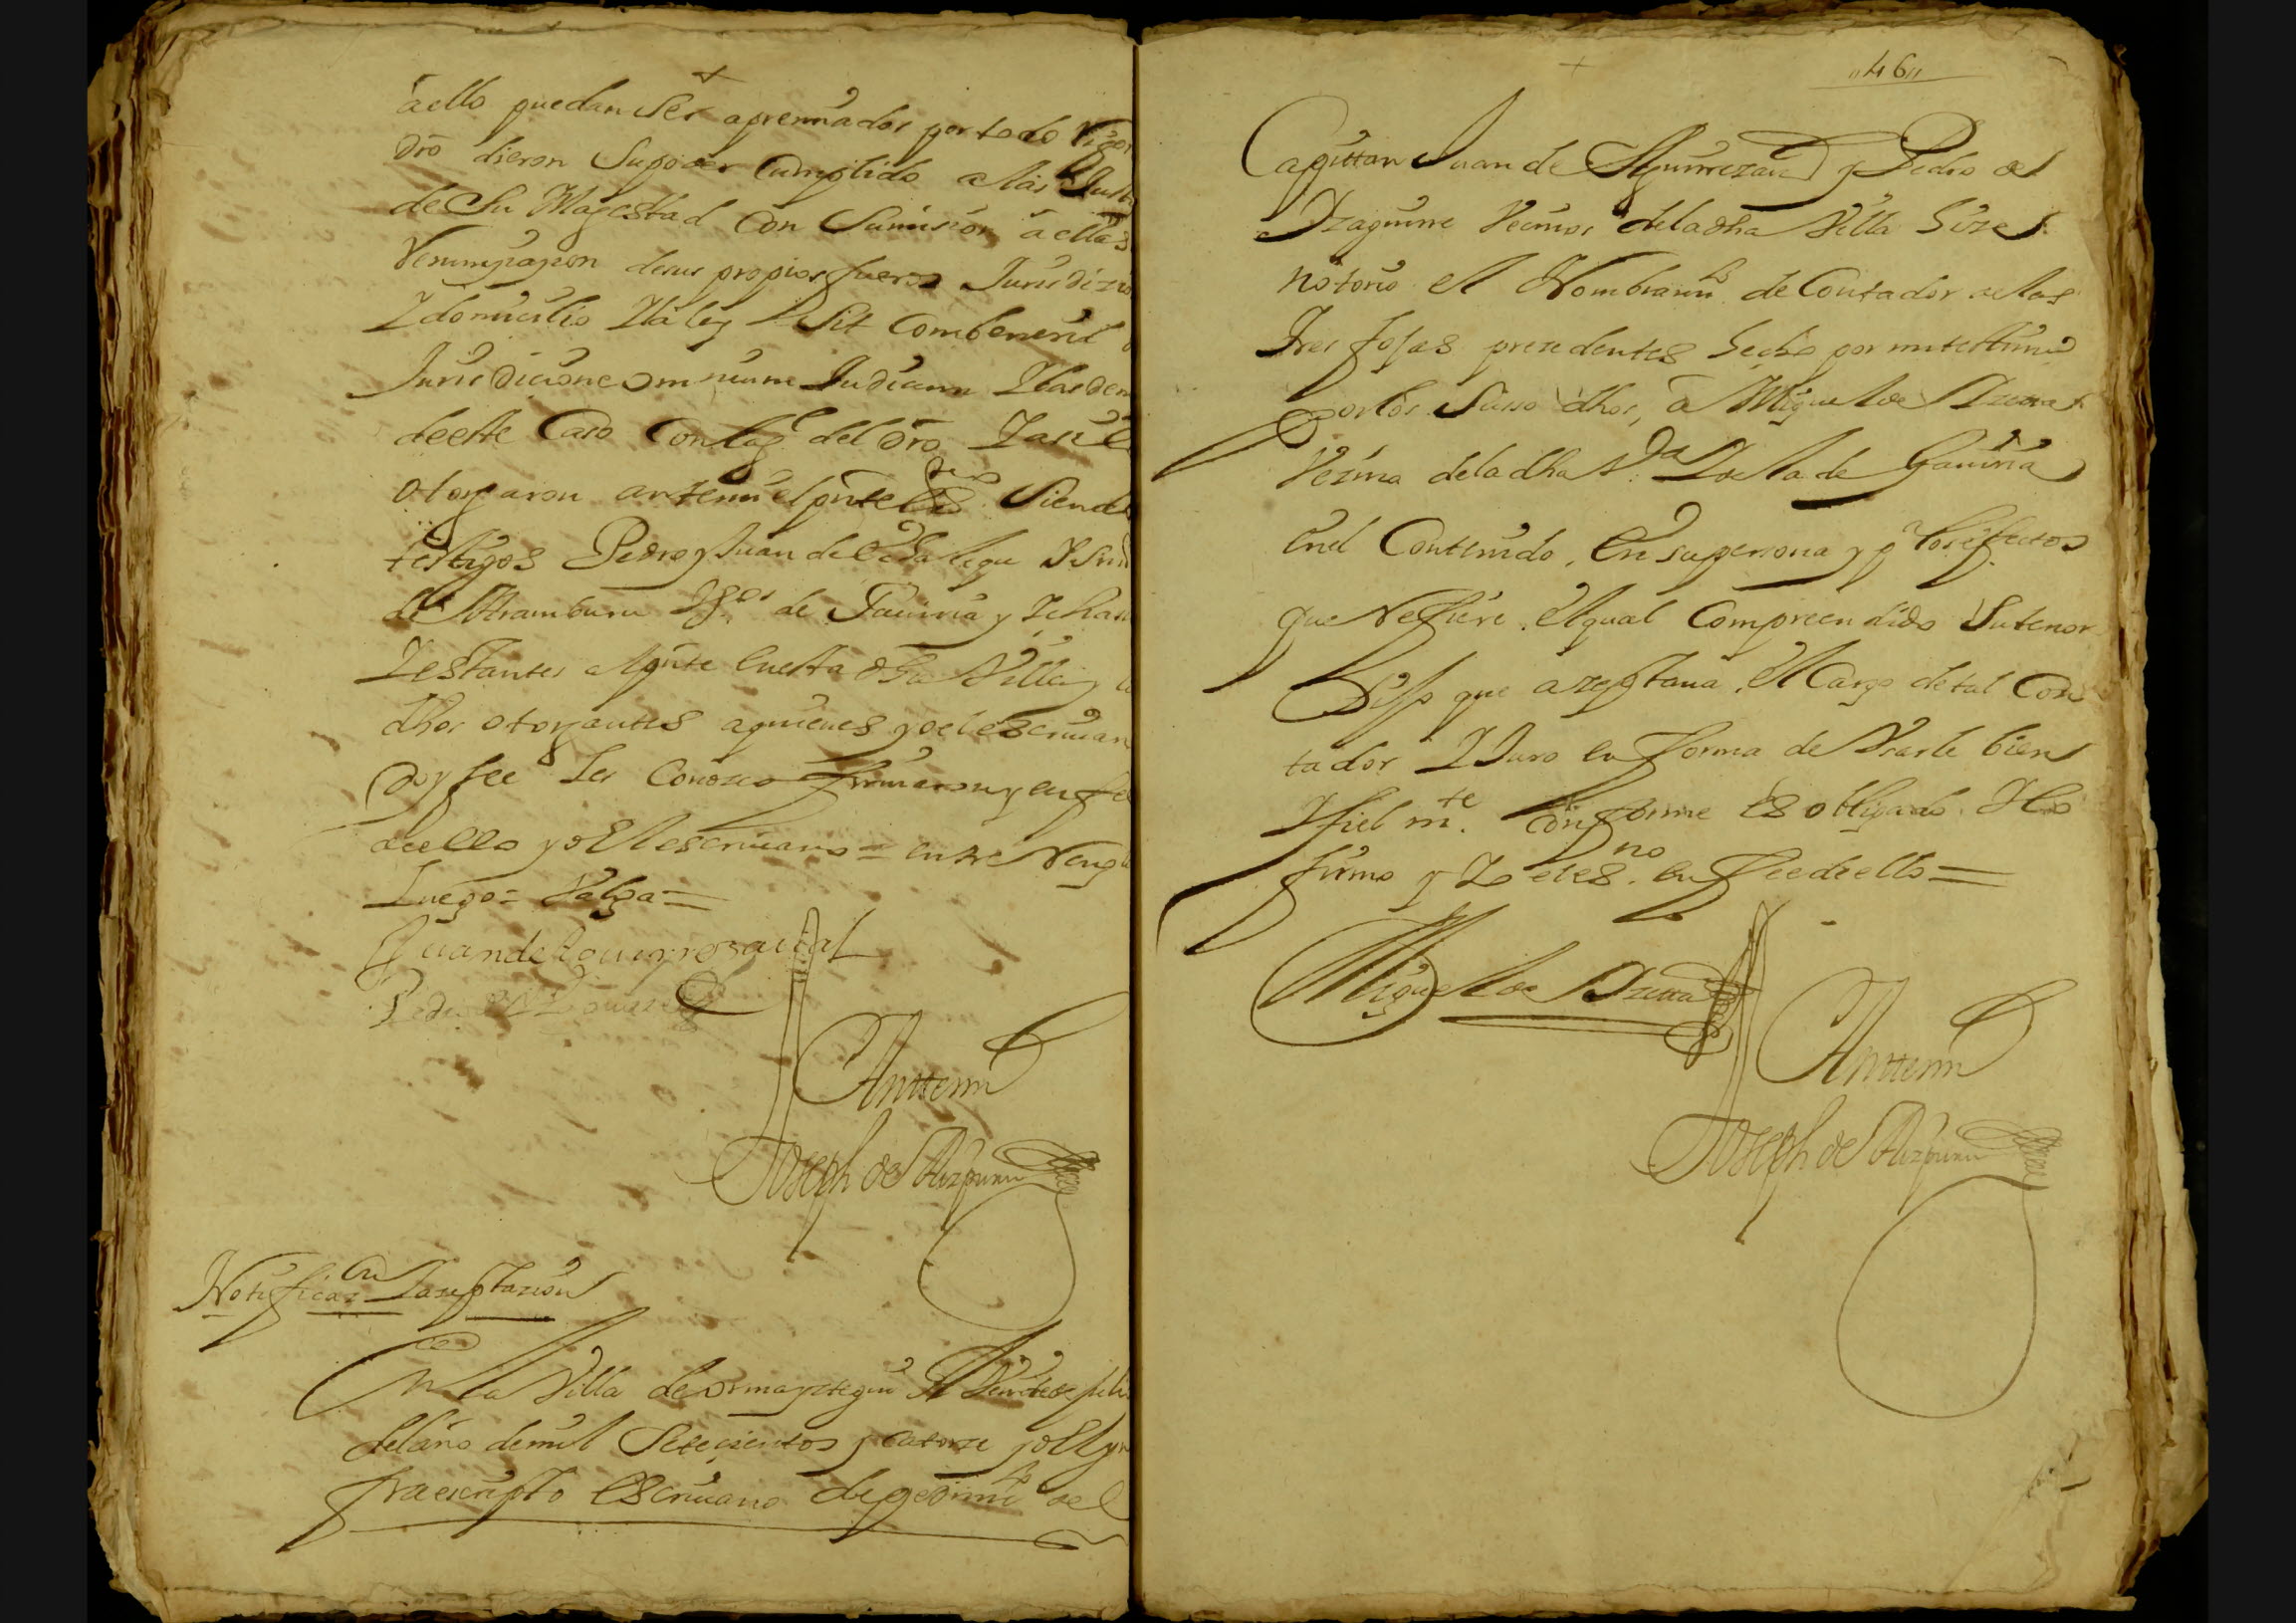 aello puedan ser apremiados por todo rigor
dro dieron su poder cumplido a las Justi
de Su Magestad con sumision a ellas
Renunziazion de sus propios fueros Jurisdizio
Y domicilio Y la ley Sit Combenerit
Jurisdicione omnium Judicum Y las dem
de este Caso Con la g.l del dro Y asi lo
otorgaron ante mi el prite ess.no Siendo
testigos Pedro y Juan de
de Aramburu V.os de Gauiria y
Y estantes al prite en esta dha Villa y
dhos otorgantes a quienes yo el escriuan
doy fee les Conozco firmaron y en fe
de ello yo el escriuano = entre Reng
Luego = Valga =
Juan de Aguirrezaual
Pedro de
Ante mi
Joseph de Aizpuru
Notificaz.on Y azeptazion
En la Villa de ormayztegui A Veinte
del año de mil Setezientos y catorze yo el yn
fraescripto escriuano de pedimi.to del
46
Capittan Juan de Aguirrezaual y Pedro de
Yzaguirre Vecinos de la dha Villa hize
notorio el Nombrami.to de Contador de las
tres fojas prezedentes hecho por mi testimo
por los Suso dhos, a Miguel de
Vezino de la dha V.a de Gauiria
en el Contenido, En su persona y p.a los efectos
que Refiere, el qual Compreendido Su tenor
Dijo que azeptaua, el Cargo de tal Con
tador Y Juro en forma de Vsarle bien
Y fiel m.te conforme es obligado. Y lo
firmo y Yo el es.no en fee de ello =
Miguel de
Ante mi
Joseph de Aizpuru